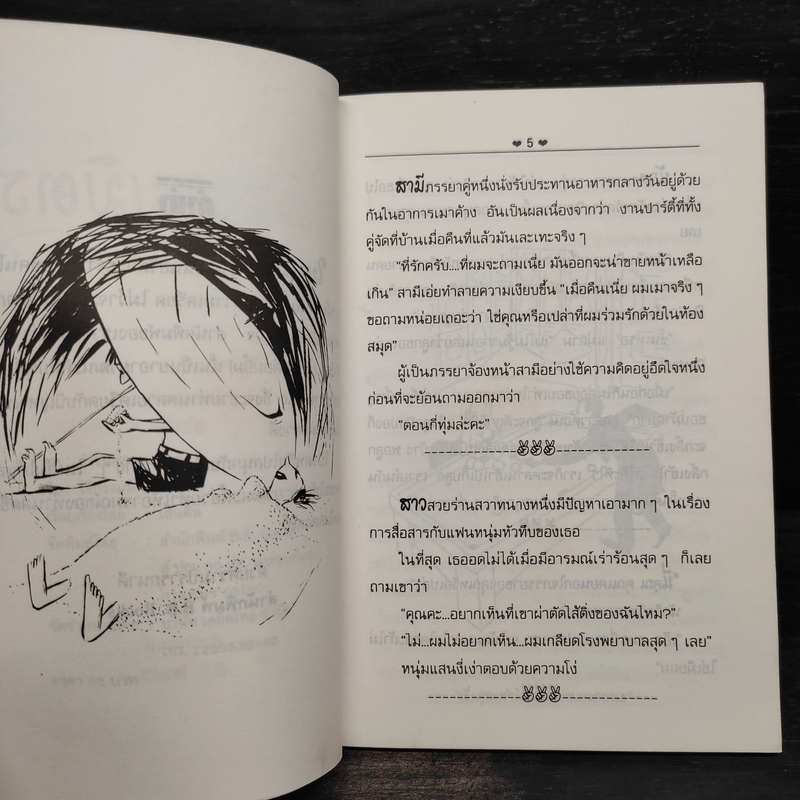 ❤ 5 ❤
สามีภรรยาคู่หนึ่งนั่งรับประทานอาหารกลางวันอยู่ด้วย
กันในอาการเมาค้าง อันเป็นผลเนื่องจากว่า งานปาร์ตี้ที่ทั้ง
คู่จัดที่บ้านเมื่อคืนที่แล้วมันเละเทะจริง ๆ
"ที่รักครับ....ที่ผมจะถามเนี่ย มันออกจะน่าขายหน้าเหลือ
เกิน" สามีเอ่ยทำลายความเงียบขึ้น "เมื่อคืนเนี่ย ผมเมาจริง ๆ
ขอถามหน่อยเถอะว่า ใช่คุณหรือเปล่าที่ผมร่วมรักด้วยในห้อง
สมุด"
ผู้เป็นภรรยาจ้องหน้าสามีอย่างใช้ความคิดอยู่อึดใจหนึ่ง
ก่อนที่จะย้อนถามออกมาว่า
"ตอนกี่ทุ่มล่ะคะ"
สาวสวยร่านสวาทนางหนึ่งมีปัญหาเอามาก ๆ ในเรื่อง
การสื่อสารกับแฟนหนุ่มทัวทึบของเธอ
ในที่สุด เธออดไม่ได้เมื่อมีอารมณ์เร่าร้อนสุด ๆ ก็เลย
ถามเขาว่า
"คุณคะ...อยากเห็นที่เขาผ่าตัดไส้ติ่งของฉันไหม?"
"ไม่...ผมไม่อยากเห็น...ผมเกลียดโรงพยาบาลสุด ๆ เลย"
หนุ่มแสนงี่เง่าตอบด้วยความโง่